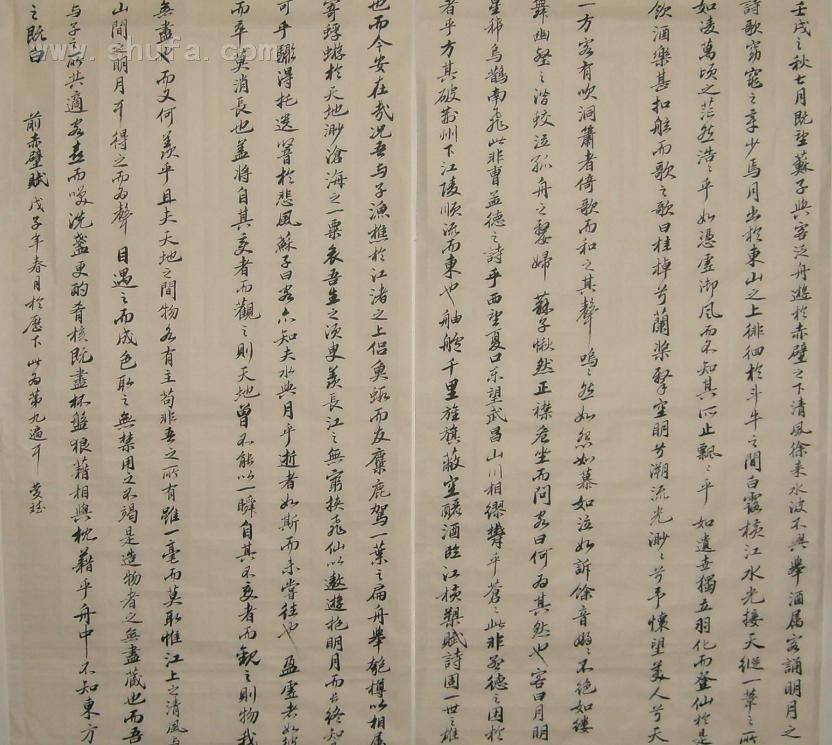 壬戌之秋七月既望蘇子與客泛舟遊於赤壁之下清風徐來水波不興舉酒属客誦明月之
詩歌窈窕之章少焉月出於東山之上徘徊於斗牛之間白露横江水光接天縱一葦之所
如凌萬頃之茫然浩浩乎如憑虚御风而不知其所止飄飄乎如遺世獨立羽化而登仙於是
飲酒樂甚扣舷而歌之歌曰桂棹兮蘭桨擊空明兮溯流光渺渺兮予懷望美人兮天
一方客有吹洞簫者倚歌而和之其聲嗚嗚然如怨如慕如泣如訴餘音嫋嫋不绝如缕
舞幽壑之潜蛟泣孤舟之嫠婦蘇子愀然正襟危坐而問客曰何為其然也客曰月明
星稀烏鵲南飛此非曹孟德之詩乎西望夏口东望武昌山川相繆鬱乎蒼蒼此非孟德之困於
者乎方其破荆州下江陵順流而東也舳艫千里旌旗蔽空釃酒臨江横槊賦詩固一世之雄
也而今安在哉况吾与子漁樵於江渚之上侣魚蝦而友麋鹿駕一葉之扁舟舉匏樽以相属
寄蜉蝣於天地渺滄海之一粟哀吾生之须臾羡長江之無窮挟飛仙以遨遊抱明月而長终知
可乎驟得托遗響於悲風蘇子曰客亦知夫水與月乎逝者如斯而未嘗往也盈虚者如彼
而卒莫消長也蓋將自其变者而觀之則天地曾不能以一瞬自其不变者而觀之則物我
無盡也而又何羨乎且夫天地之間物各有主苟非吾之所有雖一毫而莫取惟江上之清風与
山間之明月耳得之而為聲目遇之而成色取之無禁用之不竭是造物者之無盡藏也而吾
与子之所共適客喜而笑洗盞更酌肴核既盡杯盤狼藉相與枕藉乎舟中不知東方
之既白
前赤壁賦戊子年春月於歷下此為第九遍耳
www.shufa.com